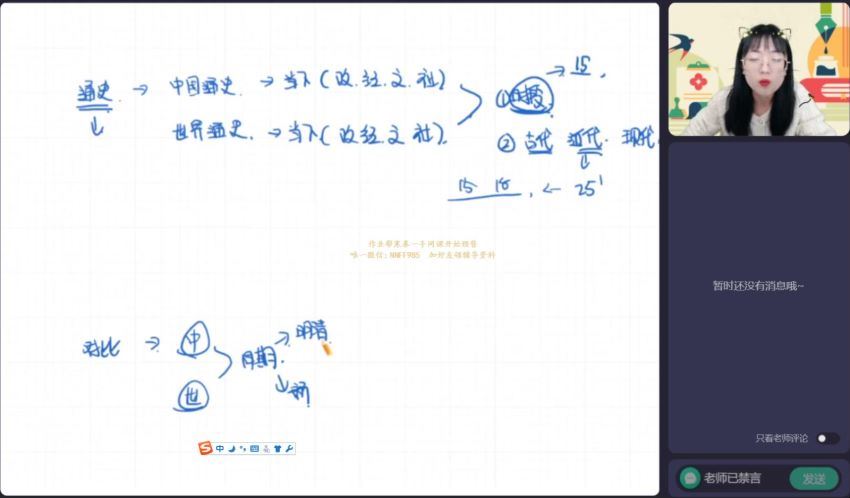 通史 → 中国通史 → 当下(政.经.文.社)
世界通史 → 当下(政.经.文.社).
→ 15.
①时段.
② 古代 近代. 现代.
15 18 . ← 25'
作业帮寒春一手网课开始预售
唯一微信:NNFF985 加好友领辅导资料
对比 → 中
世
同期.
→ 明清
中
暂时还没有消息哦~
只看老师评论
老师已禁言
发送